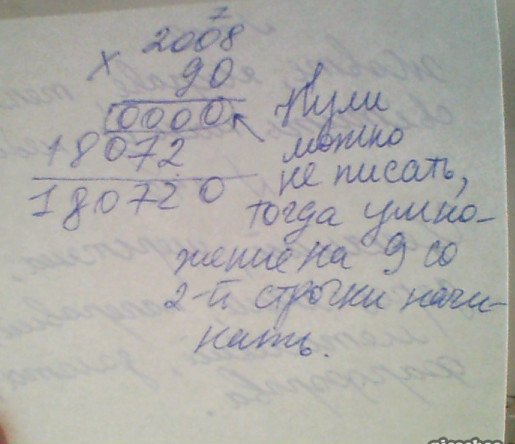 7
2008
× 90
0000
18072
180720
Нули
можно
не писать,
тогда умно-
жение на 9 со
2-й строчки начи-
нать.